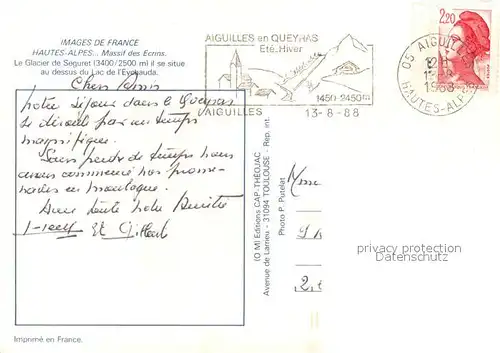 IMAGES DE FRANCE
HAUTES-ALPES... Massif des Ecrins.
Le Glacier de Séguret (3400/2500 m) il se situe
au dessus du Lac de l'Eychauda.
Chers Amis
Notre séjour dans le Queyras
se déroule par un temps
magnifique.
Sans perdre de temps nous
avons commencé nos prome-
nades en montagne.
Avec toute notre Amitié
et Gilbert
Imprimé en France.
(O M) Editions CAP-THÉOJAC
Avenue de Larrieu - 31094 TOULOUSE - Rep. int.
Photo P. Putelat
AIGUILLES en QUEYRAS
Eté.Hiver
1450-2450m
AIGUILLES
13-8-88
2,20
05 AIGUILLES
1988
HAUTES-ALPES
privacy protection
Datenschutz